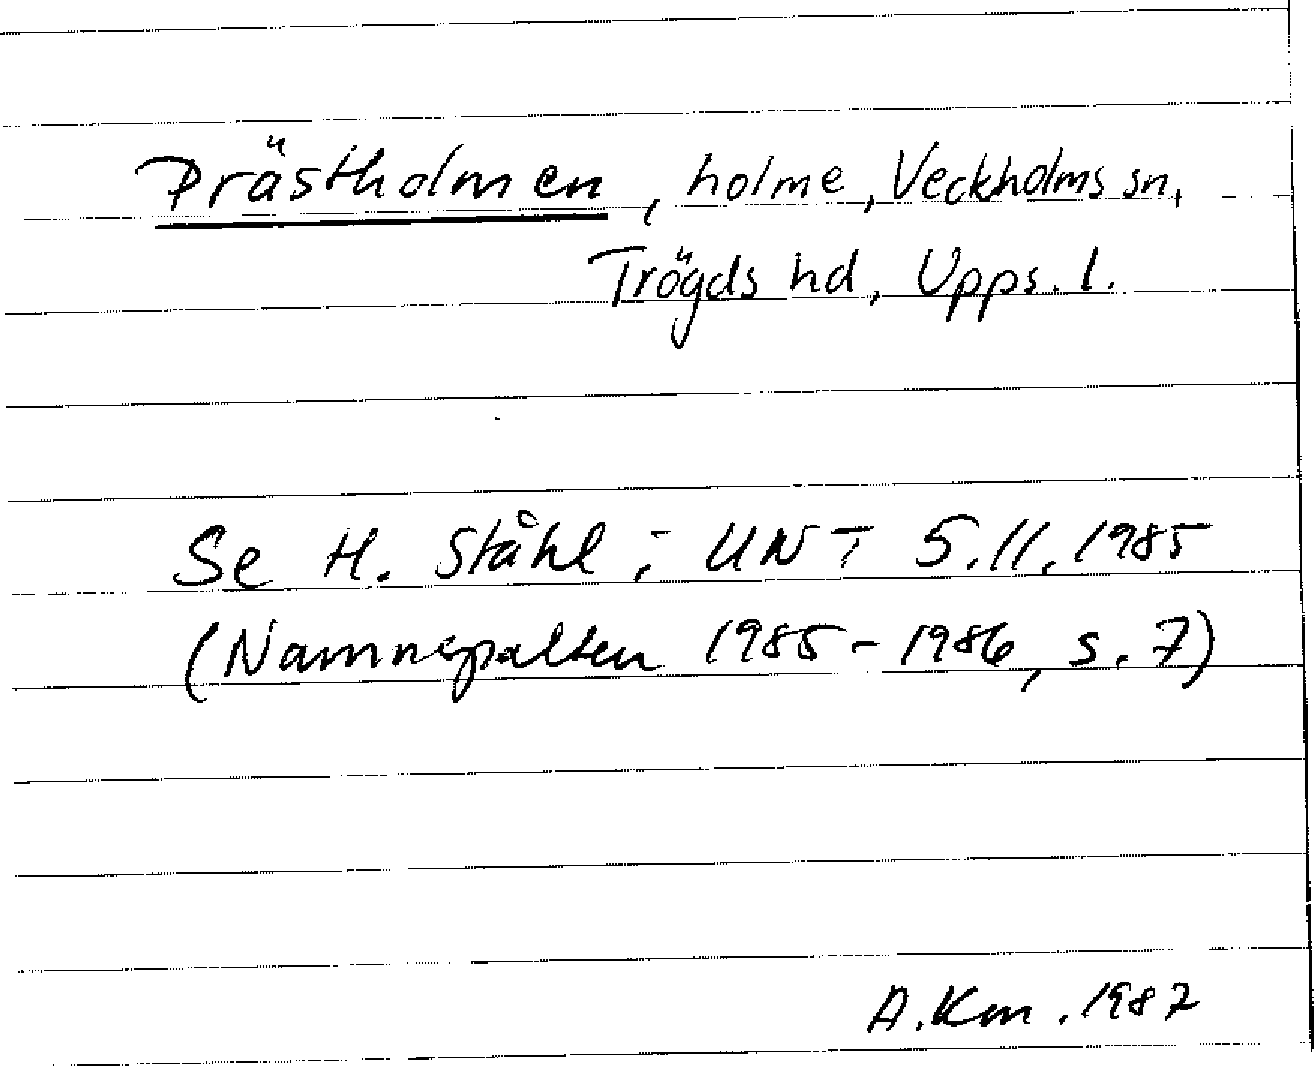 Prästholmen, holme, Veckholms sn,
Trögds hd, Upps. l.
Se H. Ståhl i UNT 5.11.1985
(Namnspalten 1985-1986, s. 7)
A. Km. 1987